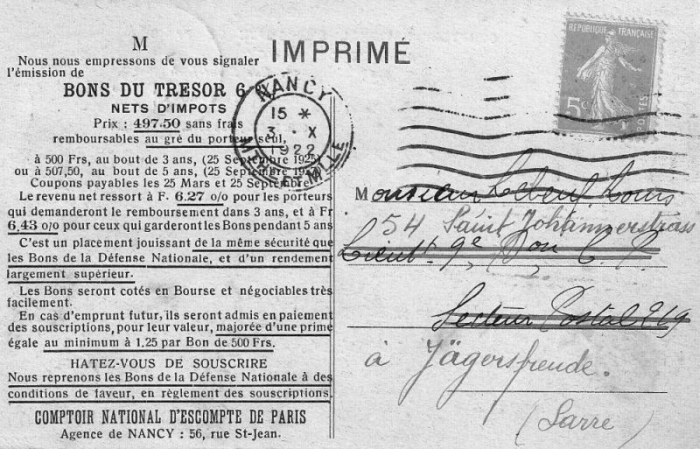 M
Nous nous empressons de vous signaler
l'émission de
BONS DU TRESOR 6
NETS D'IMPOTS
Prix : 497.50 sans frais
remboursables au gré du porteur seul,
à 500 Frs, au bout de 3 ans, (25 Septembre 1925)
ou à 507,50, au bout de 5 ans, (25 Septembre
Coupons payables les 25 Mars et 25 Septembre.
Le revenu net ressort à F. 6.27 o/o pour les porteurs
qui demanderont le remboursement dans 3 ans, et à Fr
6.43 o/o pour ceux qui garderont les Bons pendant 5 ans
C'est un placement jouissant de la même sécurité que
les Bons de la Défense Nationale, et d'un rendement
largement supérieur.
Les Bons seront cotés en Bourse et négociables très
facilement.
En cas d'emprunt futur, ils seront admis en paiement
des souscriptions, pour leur valeur, majorée d'une prime
égale au minimum à 1,25 par Bon de 500 Frs.
HATEZ-VOUS DE SOUSCRIRE
Nous reprenons les Bons de la Défense Nationale à des
conditions de faveur, en règlement des souscriptions.
COMPTOIR NATIONAL D'ESCOMPTE DE PARIS
Agence de NANCY : 56, rue St-Jean.
IMPRIMÉ
NANCY
15 *
3 . X
1922
MTHE-ET-MLLE
REPUBLIQUE FRANÇAISE
5c
POSTES
Monsieur Lebeuf Louis
54 Saint Johannerstrass
Lieut. 9e Don C. P.
Secteur Postal 269
à Jägersfreude.
(Sarre)